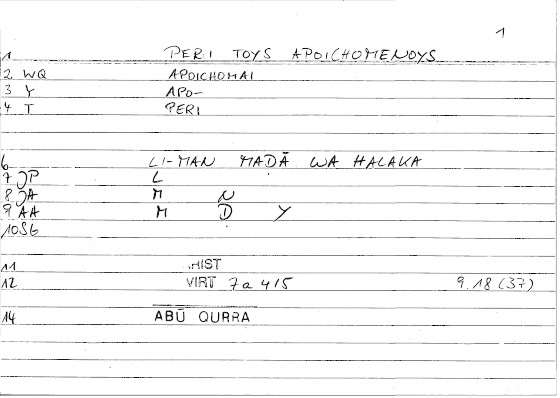 1
1 PERI TOYS APOICHOMENOYS
2 WQ APOICHOMAI
3 Y APO-
4 T PERI
6 LI-MAN MADĀ WA HALAKA
7 JP L
8 JA M N
9 AA M D Y
10 SG
11 HIST
12 VIRT 7a 4/5 9.18 (37)
14 ABŪ QURRA